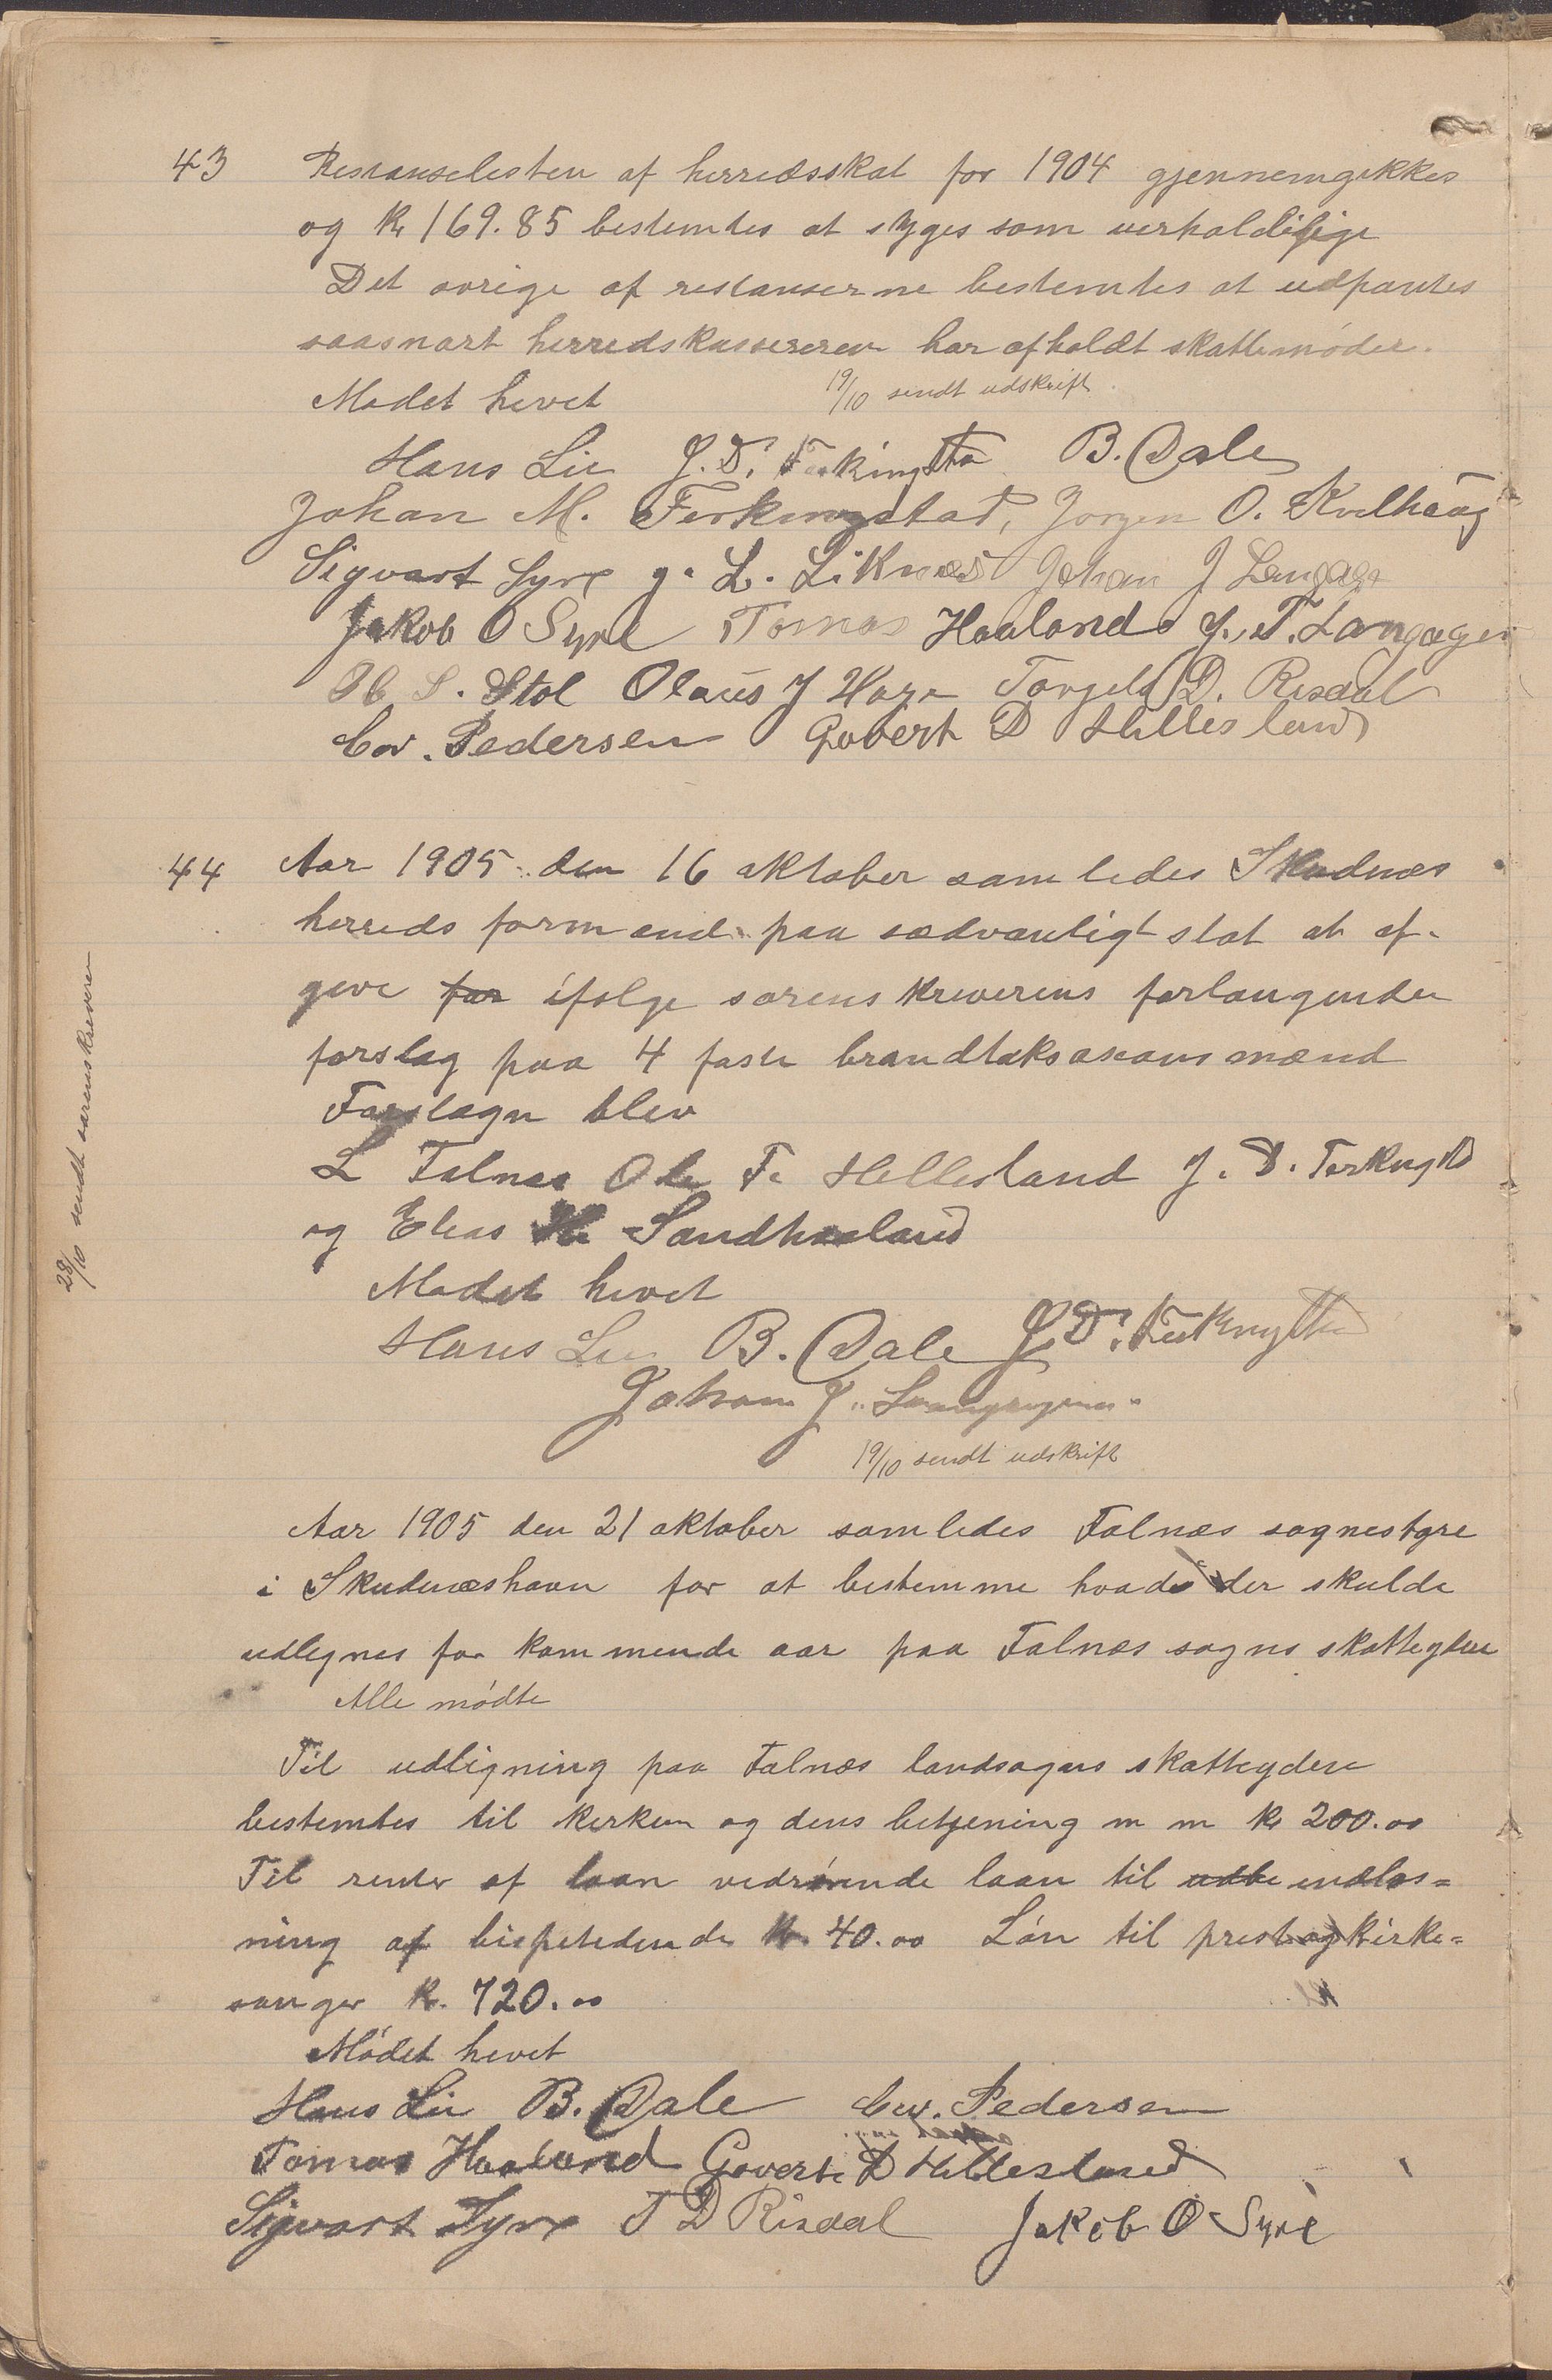 43 Restanselisten af herredsskat for 1904 gjennemgikkes
og kr 169.85 bestemtes at stryges som uerholdelige
Det øvrige af restanserne bestemtes at udpantes
saasnart herredskassereren har afholdt skattemøder.
Mødet hevet 19/10 sendt udskrift.
Hans Lie J. D. Ferkingsta B. Dale
Johan M. Ferkingstad, Jørgen O. Kvilhaug
Sigvart Syre g. L. Liknæs Johan J Langage
Jakob O Syre Tomas Haaland J. T. Langager
S. Stol Olaus J Haga Torgels D. Risdal
Pedersen Govert D Hillesland
44 Aar 1905 den 16 oktober samledes Skudnes
herreds formænd paa sædvanligt sted at af-
give for ifølge sorenskriverens forlangende
forslag paa 4 faste brandtaksasionsmænd
Forslagn blev
L Falnes Ole F. Hillesland J. D. Ferkingsta
og Elias H. Sandhaaland
Mødet hevet
Hans Lie B. Dale J. D. Ferkingsta
Johan J. Langaagen
19/10 sendt udskrift
28/10 sendt sorenskriveren
Aar 1905 den 21 oktober samledes Falnæs sognestyre
i Skudeneshavn for at bestemme hvad der skulde
udlignes for kommende aar paa Falnæs sogns skatteydere
Alle mødte
Til udligning paa Falnæs landsogns skatteydere
bestemtes til kirken og dens betjening m m kr 200.00
Til renter af laan vedrørende laan til udbe indløs=
ning af bispetiende kr. 40.00 Løn til prest og kirke=
sanger kr. 720.00
Mødet hevet
Hans Lie B. Dale Pedersen
Tomas Haaland Govert D Hillesland
Sigvart Syre T D Risdal Jakob O Syre